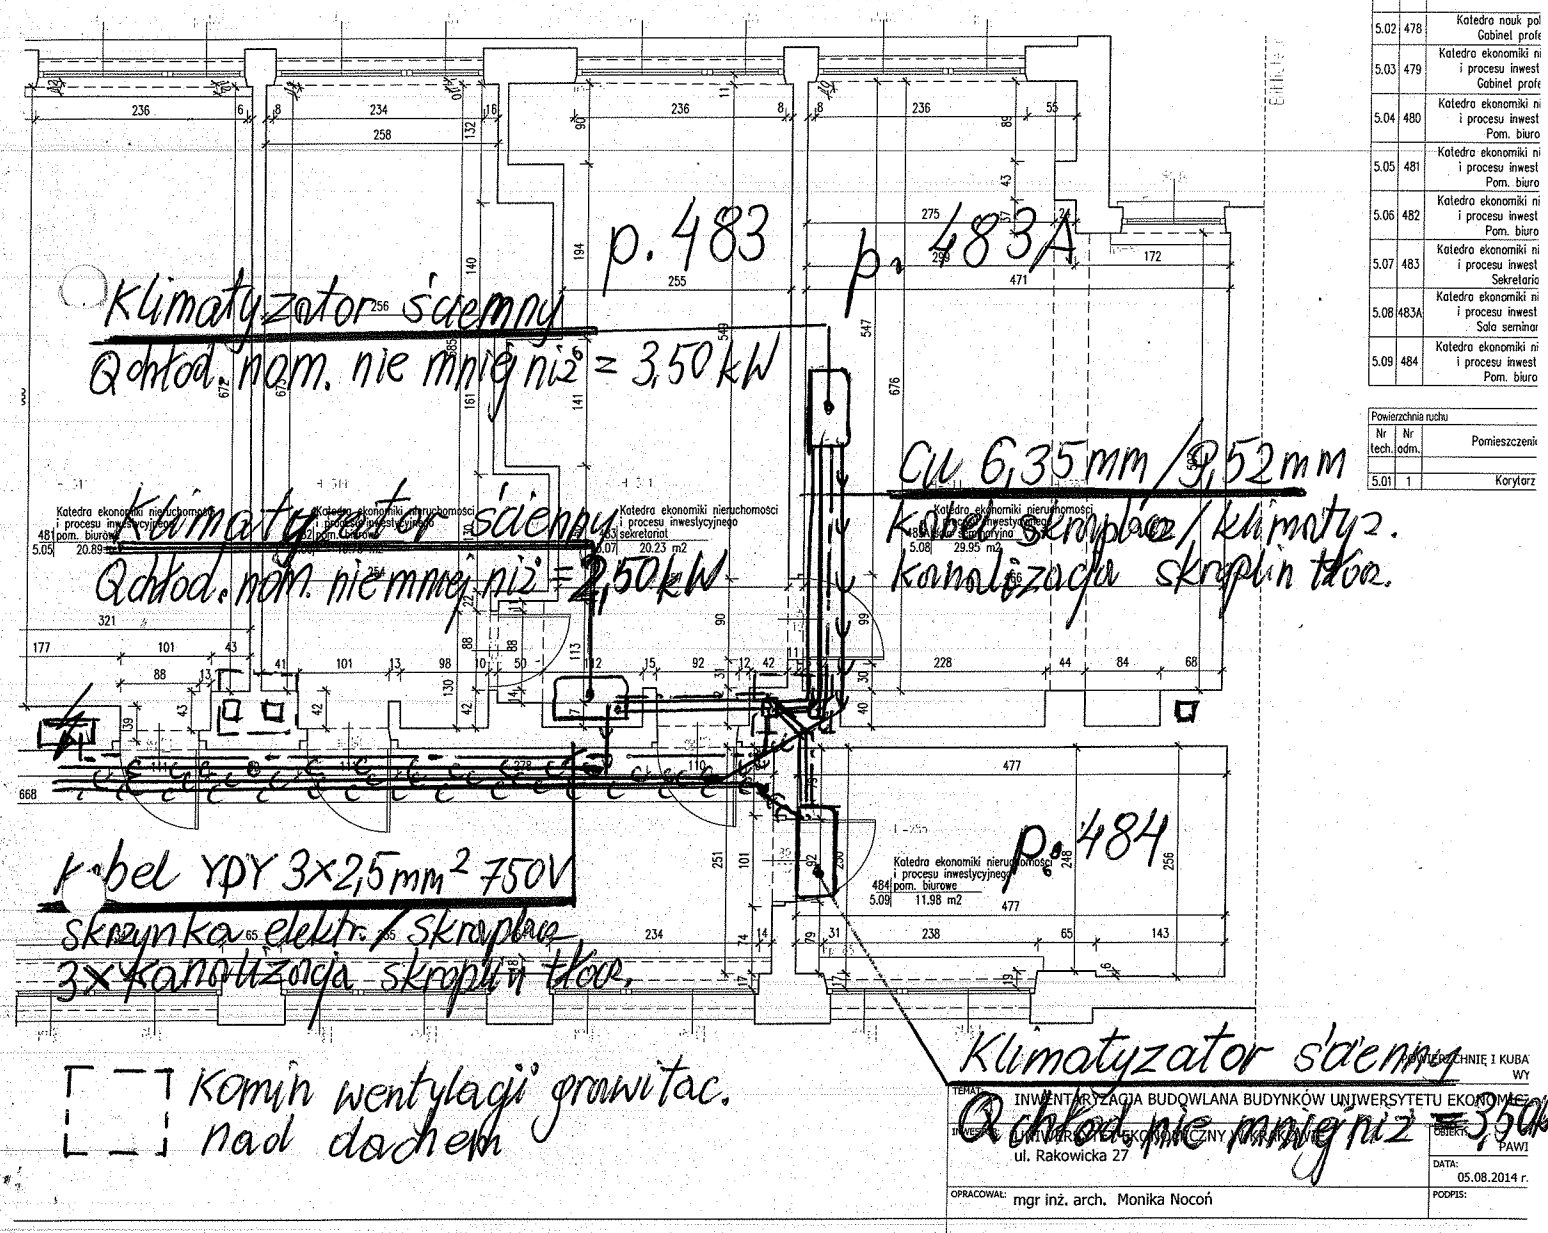 5.02 478 Katedra nauk pol
Gabinet profe
5.03 479 Katedra ekonomiki ni
i procesu inwest
Gabinet profe
5.04 480 Katedra ekonomiki ni
i procesu inwest
Pom. biuro
5.05 481 Katedra ekonomiki ni
i procesu inwest
Pom. biuro
5.06 482 Katedra ekonomiki ni
i procesu inwest
Pom. biuro
5.07 483 Katedra ekonomiki ni
i procesu inwest
Sekretaria
5.08 483A Katedra ekonomiki ni
i procesu inwest
Sala seminar
5.09 484 Katedra ekonomiki ni
i procesu inwest
Pom. biuro
Powierzchnia ruchu
Nr tech. Nr adm. Pomieszczeni
5.01 1 Korytarz
236 6 8 234 16 236 8 8 236 55
258
132
90
11
89
43
275
172
471
p. 483
p. 483A
194
140
255
256
549
547
Klimatyzator ścienny
Qchłod. nom. nie mniej niż = 3,50 kW
672
161
141
676
Cu 6,35mm / 9,52mm
kabel skraplacz / klimatyz.
kanalizacja skroplin tłocz.
Katedra ekonomiki nieruchomości
i procesu inwestycyjnego
481 pom. biurowe
5.05 20.89
Katedra ekonomiki nieruchomości
i procesu inwestycyjnego
sekretariat
5.07 20.23 m2
5.08 29.95 m2
Klimatyzator ścienny
Qchłod. nom. nie mniej niż = 2,50 kW
321
177 101 43
88 13
41 101 13 98 10 50 112 15 92 12 42
228 44 84 68
88
88
113
90
99
130
14
31
30
40
39
43
42
42
668
278
110
477
p. 484
248
256
251
101
92
Katedra ekonomiki nieruchomości
i procesu inwestycyjnego
484 pom. biurowe
5.09 11.98 m2
477
Kabel YDY 3x2,5mm² 750V
skrzynka elektr. / skraplacz
3x kanalizacja skroplin tłocz.
65 234 74 14 79 31 238 65 143
17 17 19 6
Komin wentylacji grawitac.
nad dachem
Klimatyzator ścienny
Qchłod nie mniej niż = 3,50k
POWIERZCHNIE I KUBA
WY
TEMAT:
INWENTARYZACJA BUDOWLANA BUDYNKÓW UNIWERSYTETU EKONOMICZ
UNIWERSYTET EKONOMICZNY
ul. Rakowicka 27
OBIEKT:
PAWI
DATA:
05.08.2014 r.
OPRACOWAŁ: mgr inż. arch. Monika Nocoń
PODPIS: